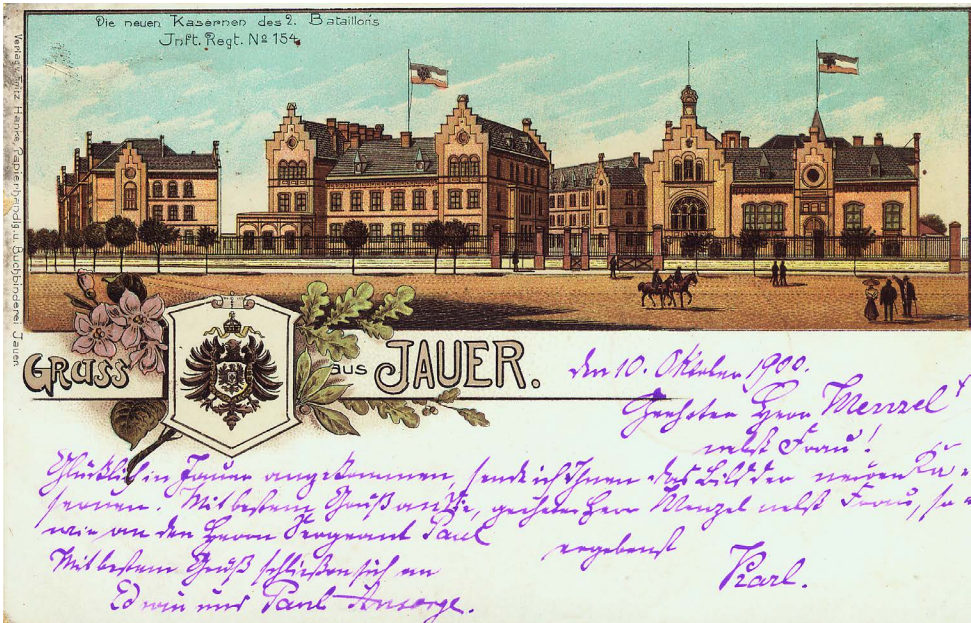 Die neuen Kasernen des 2. Bataillons
Inft. Regt. No 154.
Verlag v. Fritz Hanke, Papierhandlg. u. Buchbinderei Jauer.
GRUSS aus JAUER.
den 10. Oktober 1900.
Geehrter Herr Menzel
nebst Frau!
Glücklich in Jauer angekommen, sende ich Ihnen das Bild der neuen Ka-
sernen. Mit bestem Gruß an Sie, geehrter Herr Menzel nebst Frau, so-
wie an den Herrn Sergeant Paul
ergebenst
Karl.
Mit bestem Gruß schließen sich an
Edwin und Paul Ansorge.